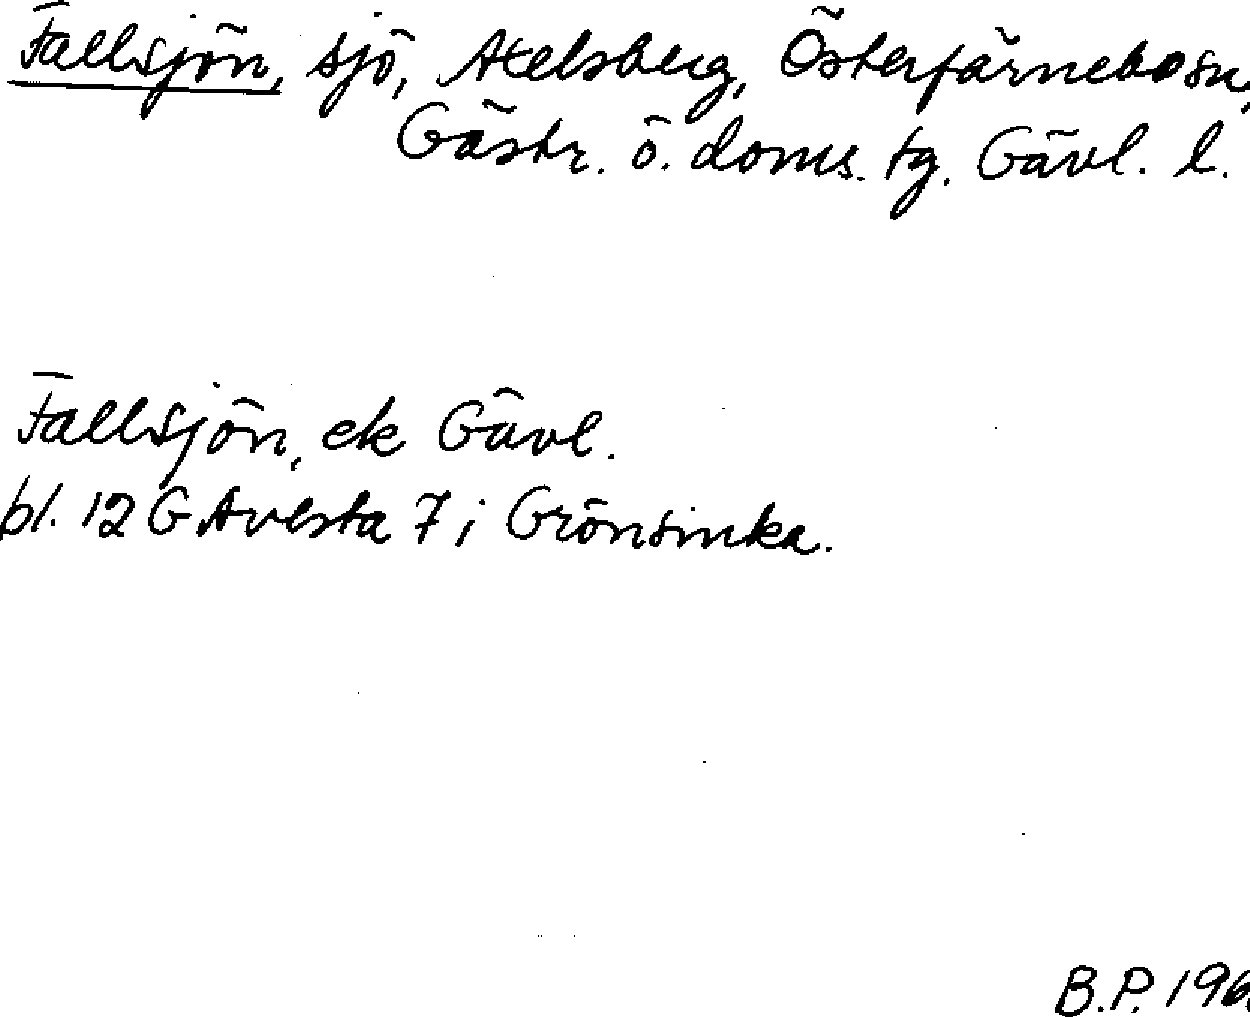 Fallsjön, sjö, Axelsberg, Österfärnebo sn,
Gästr. ö. doms. tg. Gävl. l.
Fallsjön, ek Gävl.
bl. 12 G Avesta 7 i Grönsinka.
B.P. 196